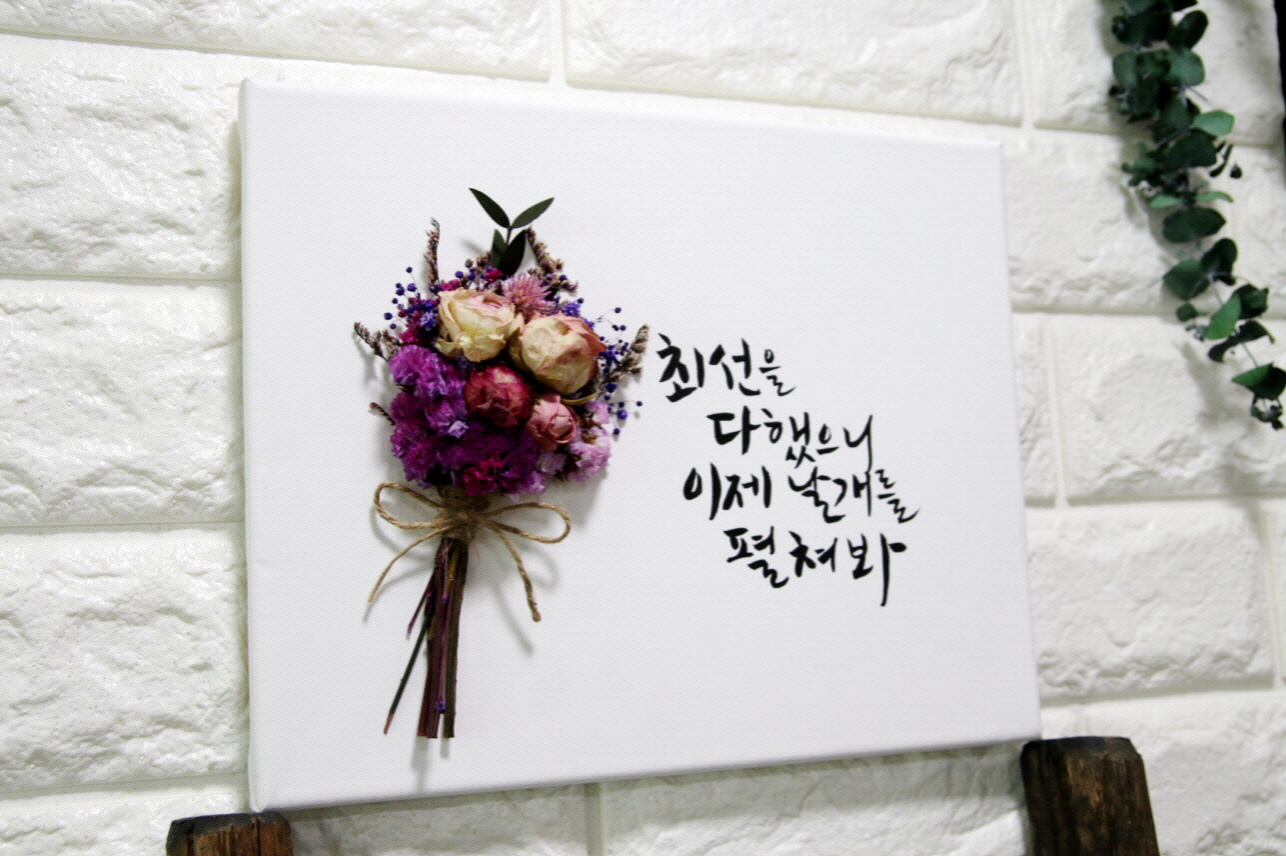 최선을
다했으니
이제 날개를
펼쳐봐